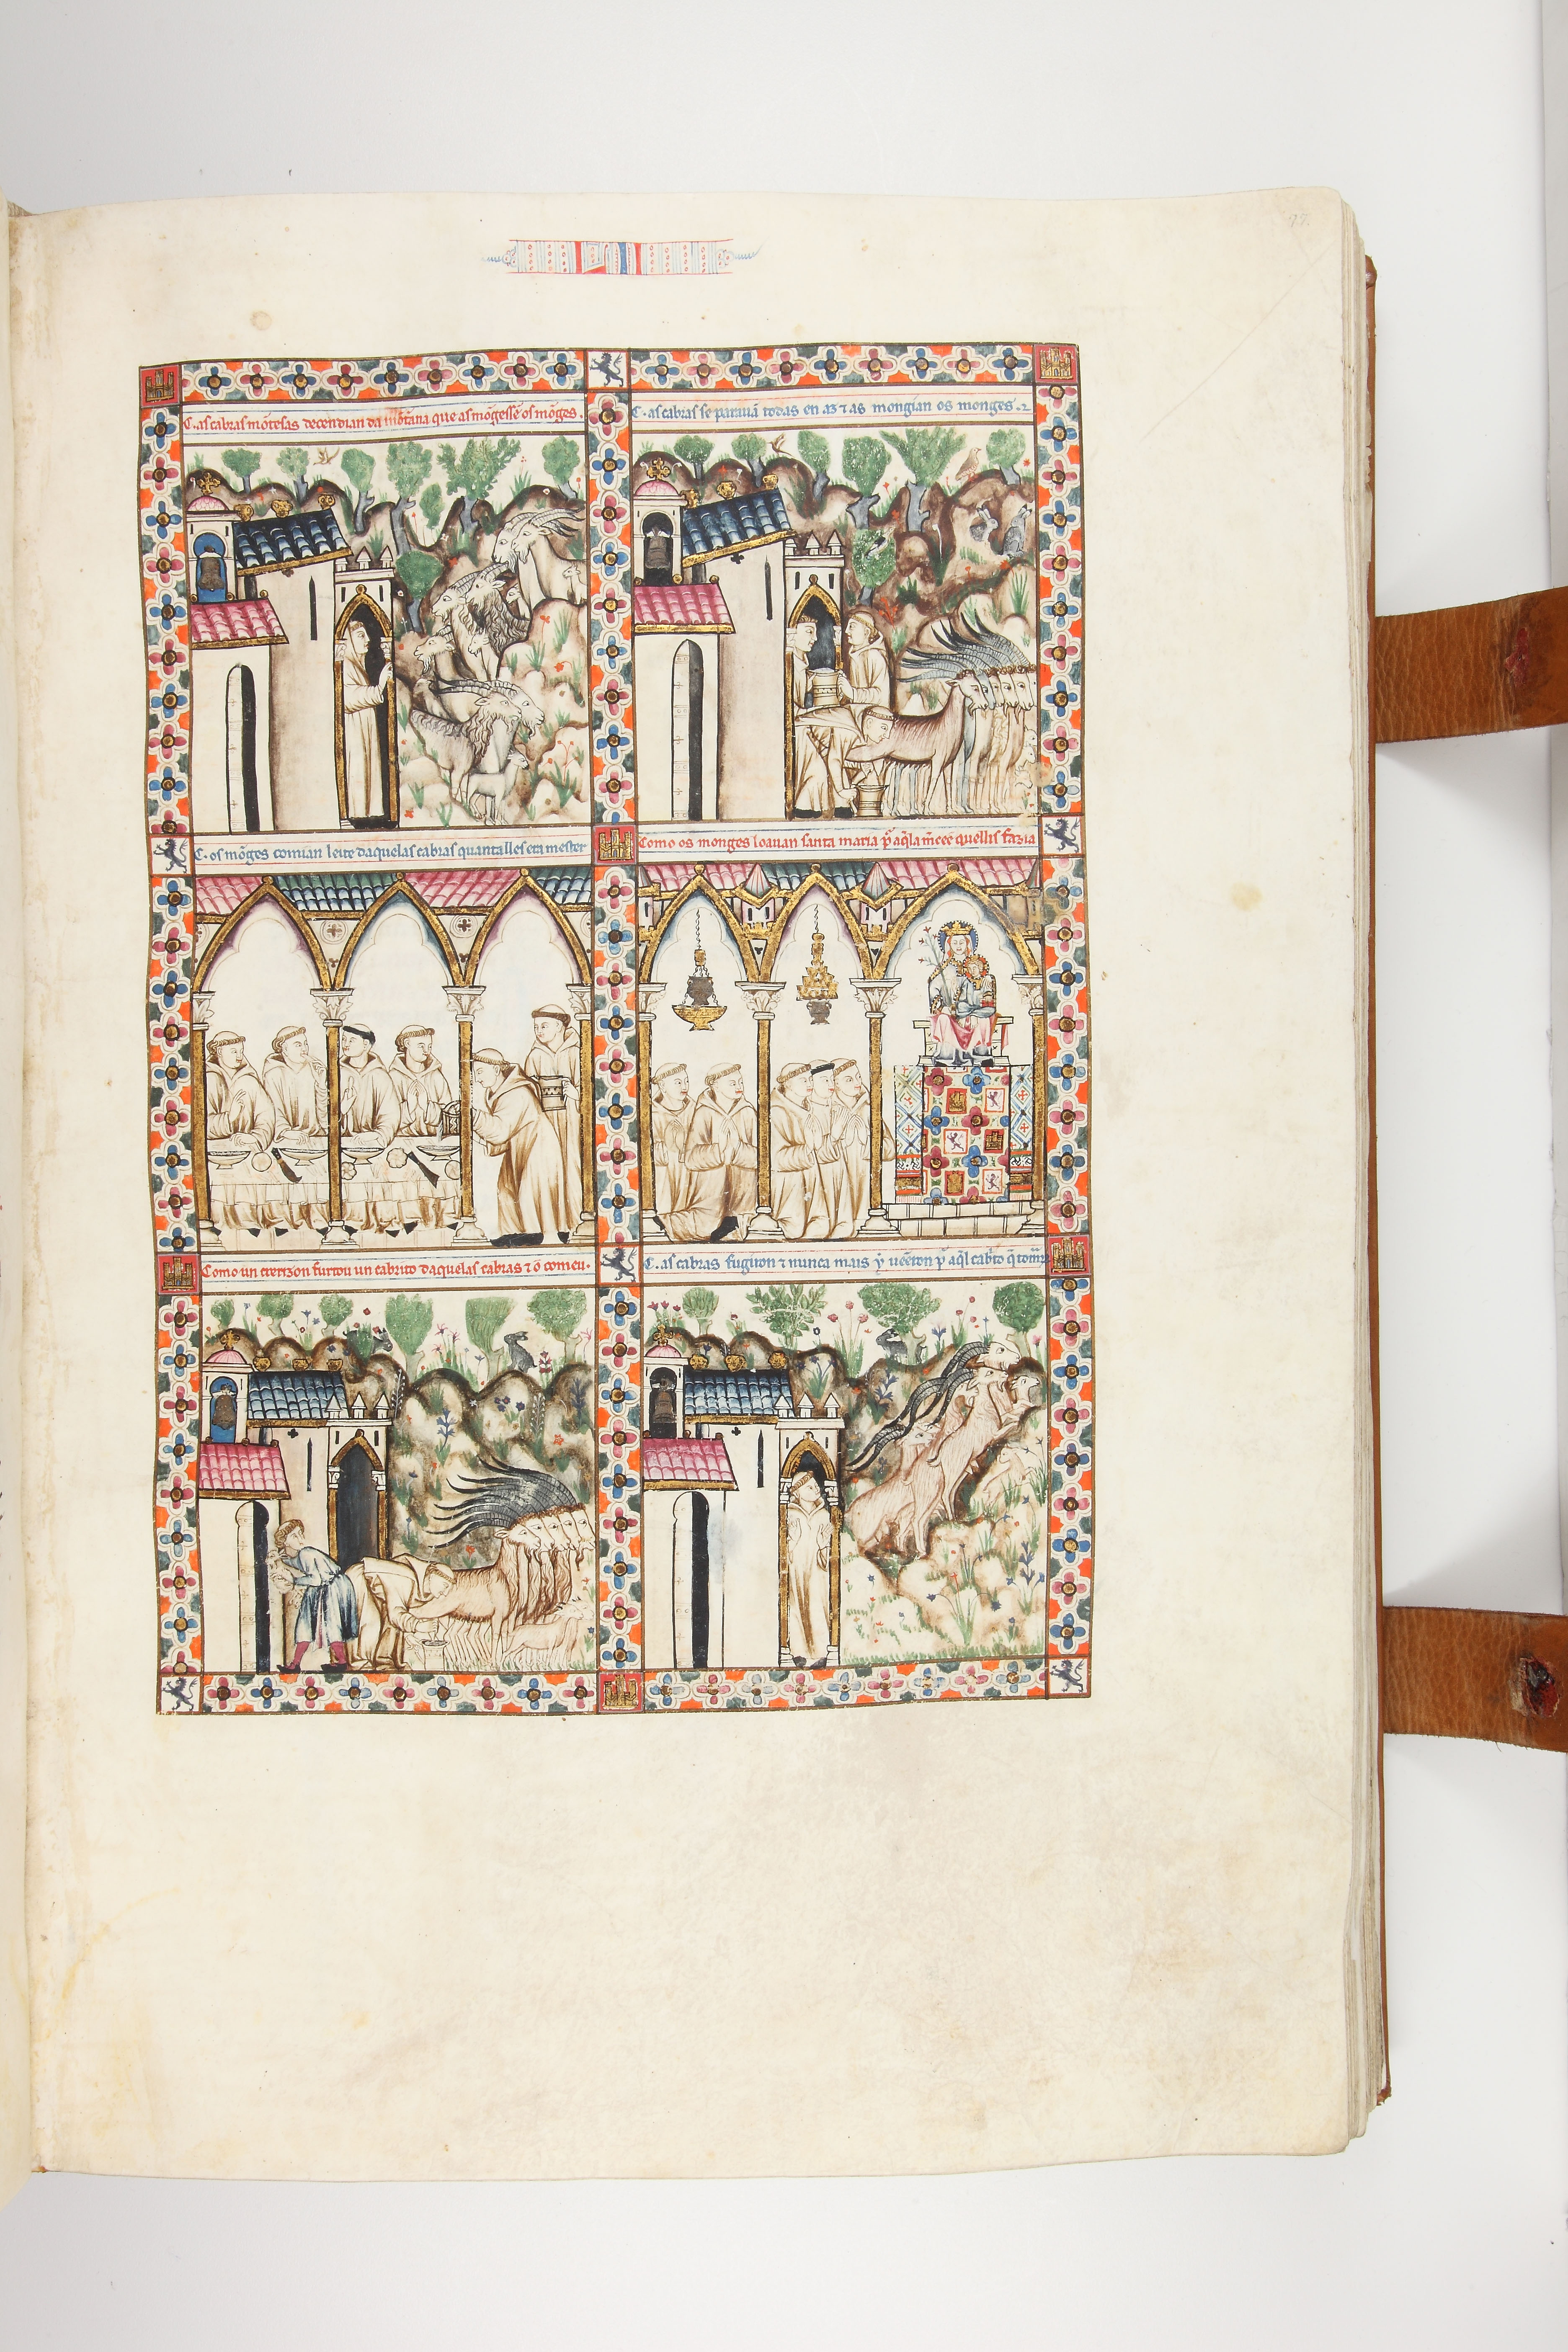 LII
77
C. as cabras mõtesas decendian da mõtana que as mõgessẽ os mõges.
C. as cabras se parauã todas en az ⁊ as mongian os monges.
C. os mõges comian leite daquelas cabras quantalles era mester
Como os monges loauan santa maria p̃ aq̃la m̃cee quellis fazia
Como un crerizon furtou un cabrito daquelas cabras ⁊ o comeu.
C. as cabras fugiron ⁊ nunca mais y uẽeron p̃ aq̃l cab̃to q̃